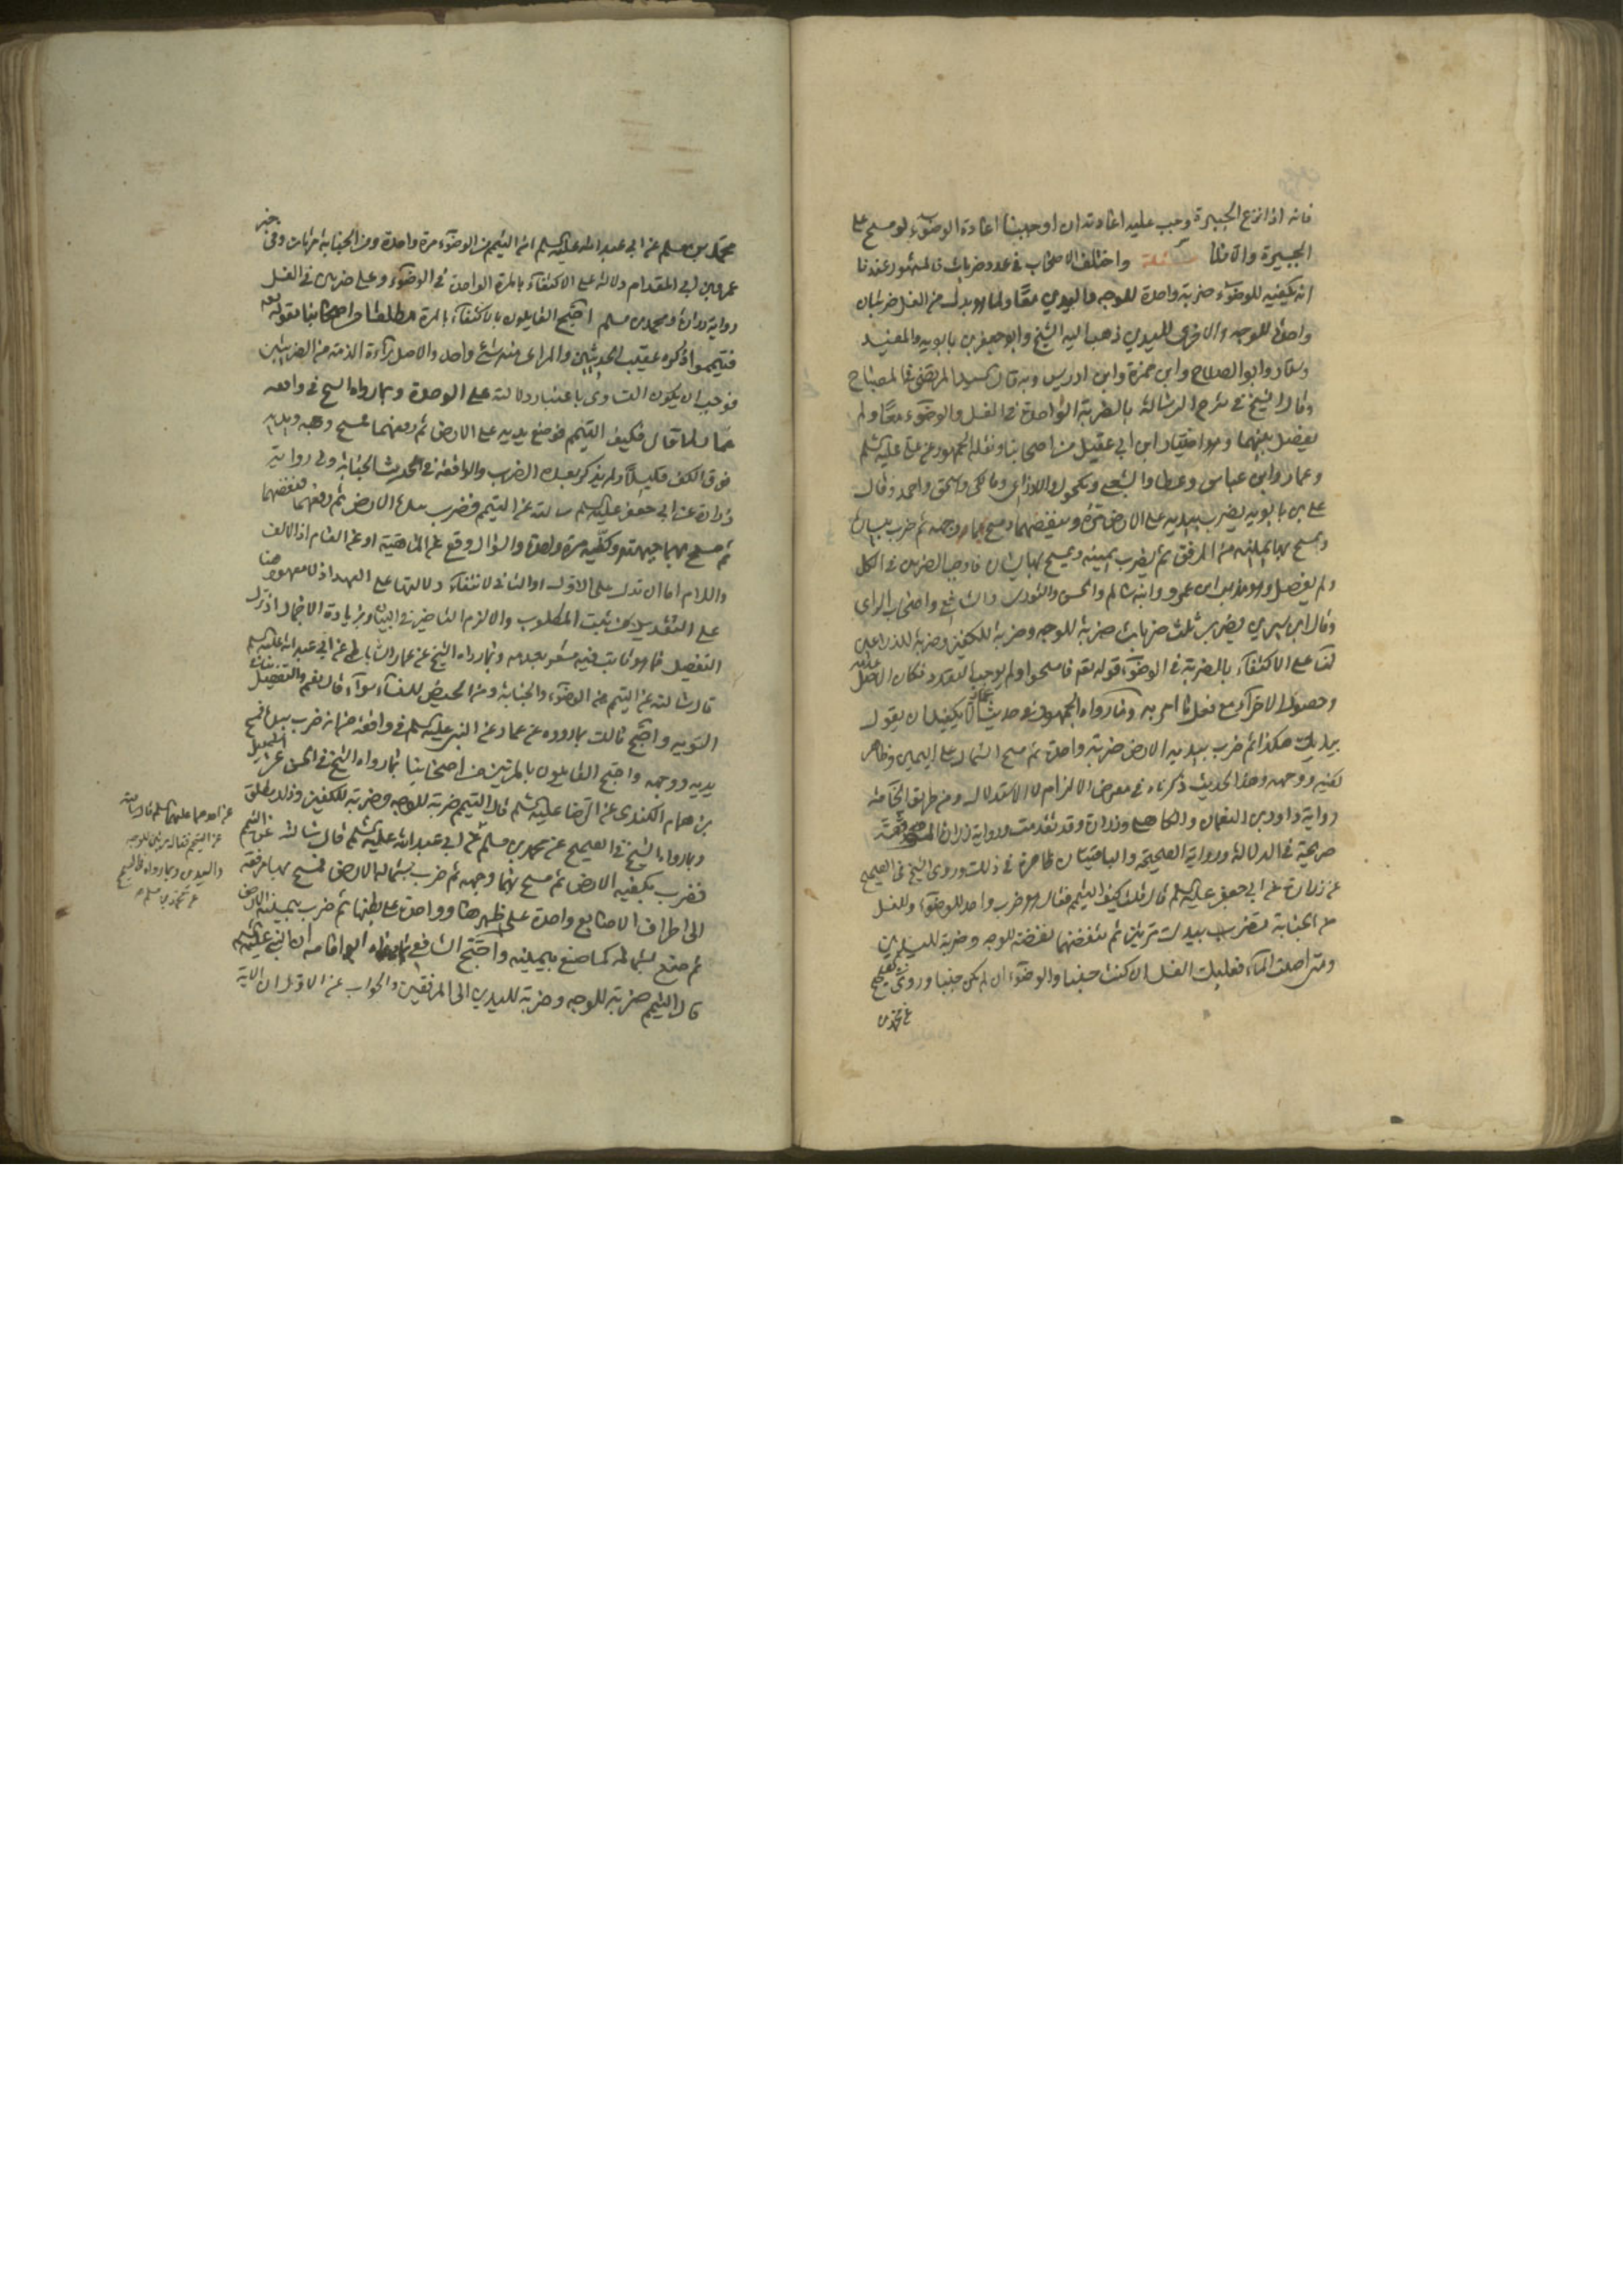 فانه اذا نزع الجبيرة وجب عليه اعادته ان اوجبنا اعادة الوضوء لو مسح على
الجبيرة والا فلا مسئلة واختلف الاصحاب في عدد ضرباته فالمشهور عندنا
انه يكفيه للوضوء ضربة واحدة للوجه واليدين معا ولما هو بدل من الغسل ضربتان
واحدة للوجه والاخرى لليدين ذهب اليه الشيخ وابو جعفر بن بابويه والمفيد
وسلار وابو الصلاح وابن حمزة وابن ادريس وبه قال السيد المرتضى في المصباح
وقال الشيخ في شرح الرسالة بالضربة الواحدة في الغسل والوضوء معا ولم
يفصل بينهما وهو اختيار ابن ابي عقيل من اصحابنا ونقله الجمهور عن علي عليه السلم
وعمار وابن عباس وعطا والشعبي ومكحول والاوزاعي ومالك واسحق واحمد وقال
علي بن بابويه يضرب بيديه على الارض مرة وينفضهما ويمسح بهما وجهه ثم يضرب بيساره
ويمسح بها يمينه من المرفق ثم يضرب بيمينه ويمسح بها يساره فاوجب الضربتين في الكل
ولم يفصل وهو مذهب ابن عمر وابنه سالم والحسن والثوري والشافعي واصحاب الراي
وقال ابن سيرين يضرب ثلث ضربات ضربة للوجه وضربة للكفين وضربة للذراعين
لنا على الاكتفاء بالضربة في الوضوء قوله تعالى فامسحوا ولم يوجب التعدد فكان الاصل عدمه
وحصول الاجزاء مع فعل ما امر به وما رواه الجمهور في حديث عمار انما يكفيك ان يقول
بيديك هكذا ثم ضرب بيديه الارض ضربة واحدة ثم مسح الشمال على اليمين وظاهر
كفيه ووجهه وهذا الحديث ذكرناه في معرض الالزام لا الاستدلال ومن طريق الخاصة
رواية داود بن النعمان والكاهلي وزرارة وقد تقدمت ورواية زرارة
صريحة في الدلالة ورواية الصحيحة والباقيتان ظاهرة في ذلك وروى الشيخ في الصحيح
عن زرارة عن ابي جعفر عليه السلم قال قلت كيف التيمم فقال هو ضرب واحد للوضوء وللغسل
من الجنابة تضرب بيديك مرتين ثم تنفضهما نفضة للوجه وضربة لليدين
ومتى اصبت الماء فعليك الغسل ان كنت جنبا والوضوء ان لم تكن جنبا وروى في الصحيح
عن محمد بن
محمد بن مسلم عن ابي عبد الله عليه السلم ان التيمم من الوضوء مرة واحدة ومن الجنابة مرتان وفي خبر
عمرو بن ابي المقدام دلالة على الاكتفاء بالمرة الواحدة في الوضوء وعلى ضربتين في الغسل
رواية زرارة ومحمد بن مسلم احتج القايلون بالاكتفاء بالمرة مطلقا من اصحابنا بقوله تعالى
فتيمموا ذكره عقيب الحدثين والمراعى منه شيء واحد والاصل براءة الذمة من الضربتين
فوجب ان يكون التساوي باعتبار دلالته على الوحدة وبما رواه الشيخ في واقعة
عمار لما قال فكيف التيمم فوضع يديه على الارض ثم رفعهما فمسح وجهه ويديه
فوق الكف قليلا ولم يذكر تعدد الضرب والواقعة في الحدث الجنابة وفي رواية
زرارة عن ابي جعفر عليه السلم سالته عن التيمم فضرب بيده الارض ثم رفعهما فنفضهما
ثم مسح بهما جبهته وكفيه مرة واحدة والسؤال وقع عن الماهية او عن العام اذ الالف
واللام اما ان تدل على الاول او الثاني لانتفاء دلالتها على العهد اذ لا معهود هنا
على التقديرين يثبت المطلوب والا لزم التاخير في البيان وبزيادة الاجمال اذ ترك
التفصيل فيما هو ثابت فيه مشعر بعدمه وبما رواه الشيخ عن عمار الساباطي عن ابي عبد الله عليه السلم
قال سالته عن التيمم من الوضوء والجنابة ومن الحيض للنساء سواء قال نعم والتفصيل ينافي
التسوية واحتج مالك بما رووه عن عمار عن النبي عليه السلم في واقعة فانه ضرب بيده فمسح
يديه ووجهه واحتج القايلون بالمرتين من اصحابنا بما رواه الشيخ في الحسن عن اسمعيل
بن همام الكندي عن الرضا عليه السلم قال التيمم ضربة للوجه وضربة للكفين وذلك مطلق
وبما رواه الشيخ في الصحيح عن محمد بن مسلم عن ابي عبد الله عليه السلم قال سالته عن التيمم
فضرب بكفيه الارض ثم مسح بهما وجهه ثم ضرب بشماله الارض فمسح بها مرفقه
الى اطراف الاصابع واحدة على ظهرها وواحدة على بطنها ثم ضرب بيمينه الارض
ثم صنع بشماله كما صنع بيمينه واحتج الشافعي بما رواه ابو امامة ان النبي عليه السلم
قال التيمم ضربة للوجه وضربة لليدين الى المرفقين والجواب عن الاول ان الاية
عن احدهما عليهما السلم قال سالته
عن التيمم فقال مرتين للوجه
واليدين وبما رواه في الصحيح
عن محمد بن مسلم